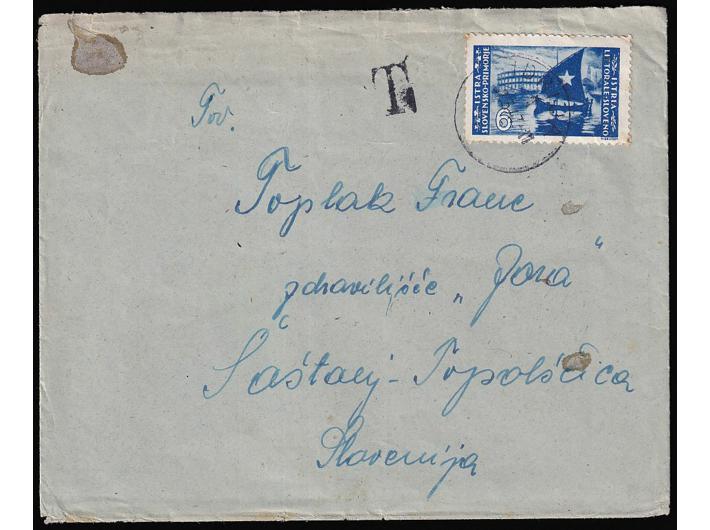 T
ISTRA
SLOVENSKO-PRIMORJE
6
ISTRIA
LITORALE-SLOVENO
Tov.
Toplak Franc
zdravilišče „Zora“
Šaštanj-Topolščica
Slovenija